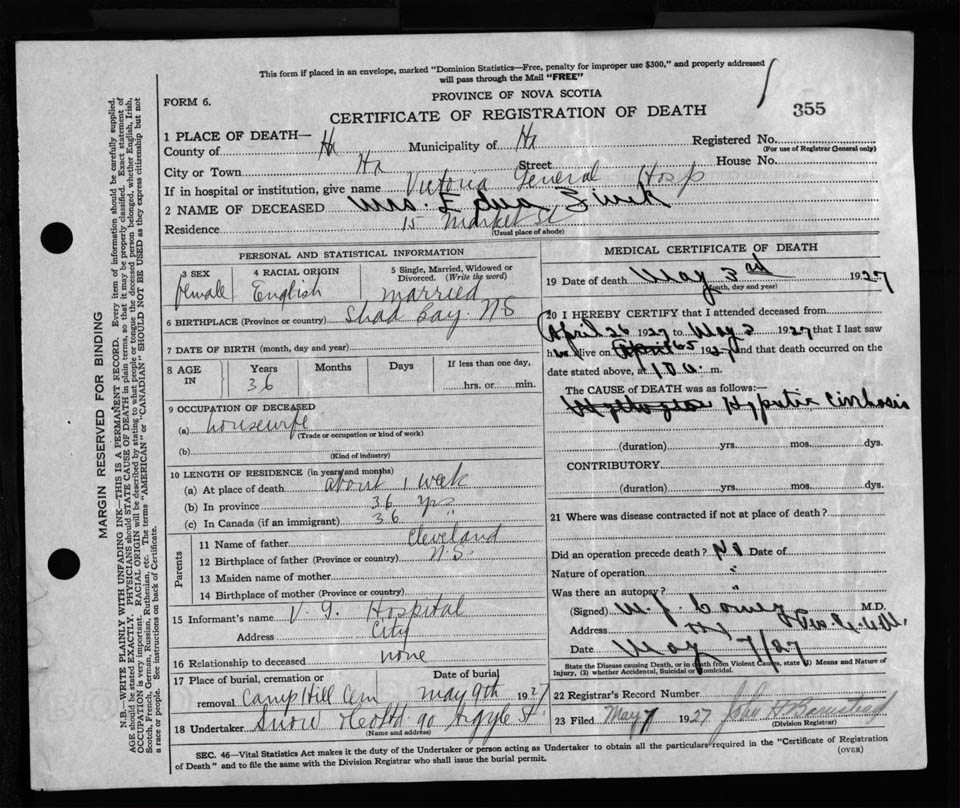 This form if placed in an envelope, marked "Dominion Statistics—Free, penalty for improper use $300," and properly addressed
will pass through the Mail "FREE"
PROVINCE OF NOVA SCOTIA
FORM 6.
CERTIFICATE OF REGISTRATION OF DEATH
355
1 PLACE OF DEATH—
County of Hx Municipality of Hx Registered No.
(For use of Registrar General only)
City or Town Hx Street House No.
If in hospital or institution, give name Victoria General Hosp
2 NAME OF DECEASED Mrs. Edna Zink
Residence 15 Market St
(Usual place of abode)
PERSONAL AND STATISTICAL INFORMATION
3 SEX 4 RACIAL ORIGIN 5 Single, Married, Widowed or
Divorced. (Write the word)
female English married
6 BIRTHPLACE (Province or country) Shad Bay. NS
7 DATE OF BIRTH (month, day and year)
8 AGE IN Years Months Days If less than one day,
36 hrs. or min.
9 OCCUPATION OF DECEASED
(a) housewife
(Trade or occupation or kind of work)
(b)
(Kind of industry)
10 LENGTH OF RESIDENCE (in years and months)
(a) At place of death about 1 week
(b) In province 36 yrs
(c) In Canada (if an immigrant) 36 "
Parents
11 Name of father Cleveland
12 Birthplace of father (Province or country) N.S.
13 Maiden name of mother
14 Birthplace of mother (Province or country)
15 Informant's name V. G. Hospital
Address City
16 Relationship to deceased none
17 Place of burial, cremation or Date of burial
removal Camp Hill Cem May 9th 1927
18 Undertaker Snow & Co Ltd 90 Argyle St
(Name and address)
MEDICAL CERTIFICATE OF DEATH
19 Date of death May 3rd 1927
(Month, day and year)
20 I HEREBY CERTIFY that I attended deceased from
April 26 1927 to May 3 1927 that I last saw
h alive on April 1927 and that death occurred on the
date stated above, at 10 a. m.
The CAUSE of DEATH was as follows:—
Hypatic Cirrhosis
(duration) yrs. mos. dys.
CONTRIBUTORY
(duration) yrs. mos. dys.
21 Where was disease contracted if not at place of death?
Did an operation precede death? No Date of
Nature of operation "
Was there an autopsy? "
(Signed) W. J. M.D.
Address
Date May 7/27
State the Disease causing Death, or in death from Violent Causes, state (1) Means and Nature of
Injury, (2) whether Accidental, Suicidal or Homicidal.
22 Registrar's Record Number
23 Filed May 7 1927 John H Barnstead
(Division Registrar)
SEC. 46—Vital Statistics Act makes it the duty of the Undertaker or person acting as Undertaker to obtain all the particulars required in the "Certificate of Registration
of Death" and to file the same with the Division Registrar who shall issue the burial permit.
(OVER)
MARGIN RESERVED FOR BINDING
N.B.—WRITE PLAINLY WITH UNFADING INK—THIS IS A PERMANENT RECORD. Every item of information should be carefully supplied.
AGE should be stated EXACTLY. PHYSICIANS should STATE CAUSE OF DEATH in plain terms, so that it may be properly classified. Exact statement of
OCCUPATION is very important. RACIAL ORIGIN will be described by stating to what people or tongue the deceased person belonged, whether English, Irish,
Scotch, French, German, Russian, Ruthenian, etc. The terms "AMERICAN" or "CANADIAN" SHOULD NOT BE USED as they express citizenship but not
a race or people. See instructions on back of Certificate.